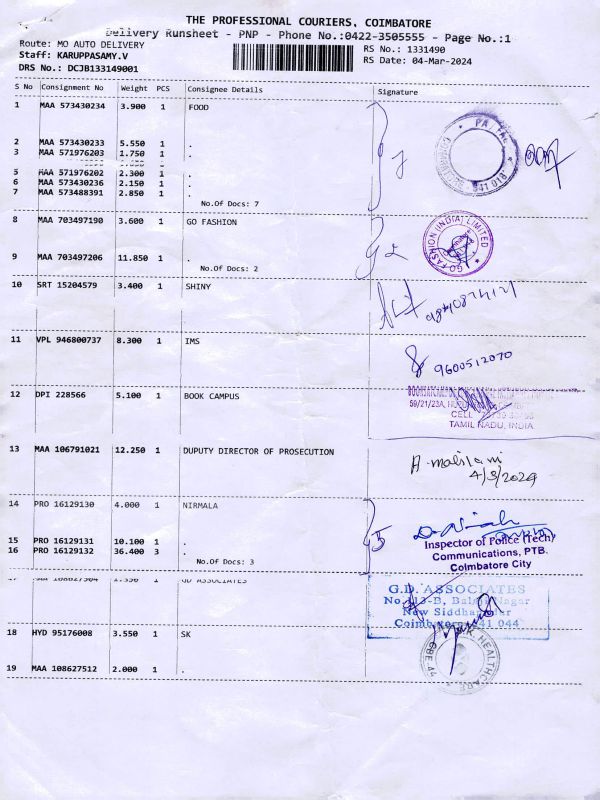 THE PROFESSIONAL COURIERS, COIMBATORE
Delivery Runsheet - PNP - Phone No.:0422-3505555 - Page No.:1
Route: MO AUTO DELIVERY
RS No.: 1331490
Staff: KARUPPASAMY.V
RS Date: 04-Mar-2024
DRS No.: DCJB133149001
S No Consignment No Weight PCS Consignee Details Signature
1 MAA 573430234 3.900 1 FOOD
2 MAA 573430233 5.550 1 .
3 MAA 571976203 1.750 1 .
5 MAA 571976202 2.300 1 .
6 MAA 573430236 2.150 1 .
7 MAA 573488391 2.850 1 .
No.Of Docs: 7
8 MAA 703497190 3.600 1 GO FASHION
GO FASHION (INDIA) LIMITED
9 MAA 703497206 11.850 1 .
No.Of Docs: 2
10 SRT 15204579 3.400 1 SHINY
11 VPL 946800737 8.300 1 IMS
9600512070
12 DPI 228566 5.100 1 BOOK CAMPUS
59/21/23A,
CELL
TAMIL NADU, INDIA.
13 MAA 106791021 12.250 1 DUPUTY DIRECTOR OF PROSECUTION
4/3/2024
14 PRO 16129130 4.000 1 NIRMALA
15 PRO 16129131 10.100 1 .
16 PRO 16129132 36.400 3 .
No.Of Docs: 3
5
Inspector of Police (Tech)
Communications, PTB.
Coimbatore City
GD ASSOCIATES
G.D. ASSOCIATES
New
Coimbatore 641 044
18 HYD 95176008 3.550 1 SK
HEALTHCARE
19 MAA 108627512 2.000 1 .